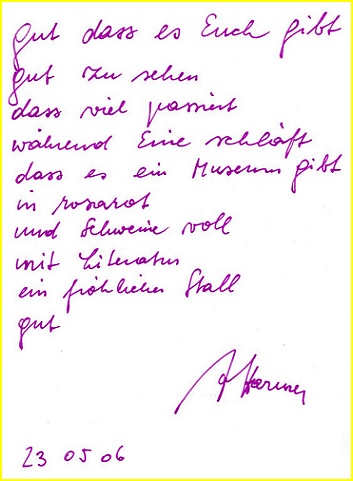 gut dass es Euch gibt
gut zu sehen
dass viel passiert
während Eine schläft
dass es ein Museum gibt
in rosarot
und Schweine voll
mit Literatur
ein fröhlicher Stall
gut
23 05 06